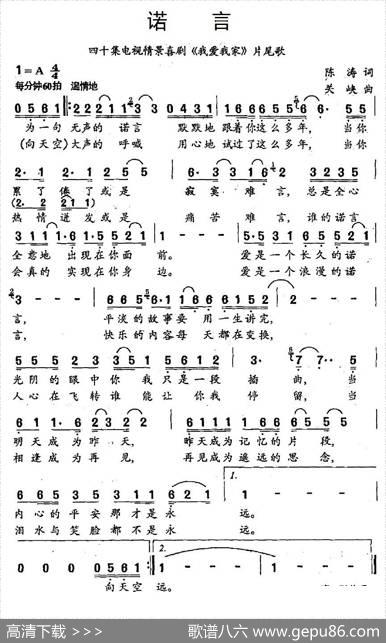 诺 言
四十集电视情景喜剧《我爱我家》片尾歌
1=A 4/4
陈 涛 词
每分钟60拍 温情地
关 峡 曲
0 5 6 1 | 2· 2 2 1 1 3 0 | 0 4 3 1 | 1 6 6 6 5 6 5 5 0 5 5 |
为一句 无声的 诺言 默默地 跟着你这么多年, 当你
(向天空)大声的 呼喊 用心地 试过了这么多年, 当你
2· 1 2· 1 2 1 1 | 6· 3 3 3 1 6 | 2 - 0 5 3 5 |
累了 倦了 或是 寂寞 难言, 总是全心
(2· 2 2 1 1)
热情 迸发 或是 痛苦 难言, 谁的诺言
3 1 1 1 1· 6 1· 5 5 1 | 3 - - | 5· 3 3 1 1 6 5 5 |
全意地 出现在你面 前。 爱是一个长久的诺
会真的 实现在你身 边。 爱是一个浪漫的诺
3 - - - | 6 6 5 6· 1 1 | 1 6 6 6 1 5 2 |
言, 平淡的故事要 用一生讲完,
言, 快乐的内容每 天都在变换,
5 5 5 2 3 3 5 | 5 5 6 1 2 | 3· 7 7· · 5 |
光阴的眼中你 我 只是一段 插曲, 当
人心在飞转谁 能 让你我 停 留, 当
6 1 1 1· 6 1 | 1 - 1 1 | 1 6 6 6 5 5 5 |
明天成为昨 天, 昨天成为记忆的片 段,
相逢成为再 见, 再见成为遥远的思 念,
6 6 5 3 5 3 5 3 | 6 2 1 | 1 - - - |
1.
内心的平安那才是永 远。
泪水与笑脸都不是永 远。
2.
0 0 0 0 5 6 1 | 1 - - - | 1 - - 0 |
向天空 远。
高清下载 >>>
歌谱八六 www.gepu86.com